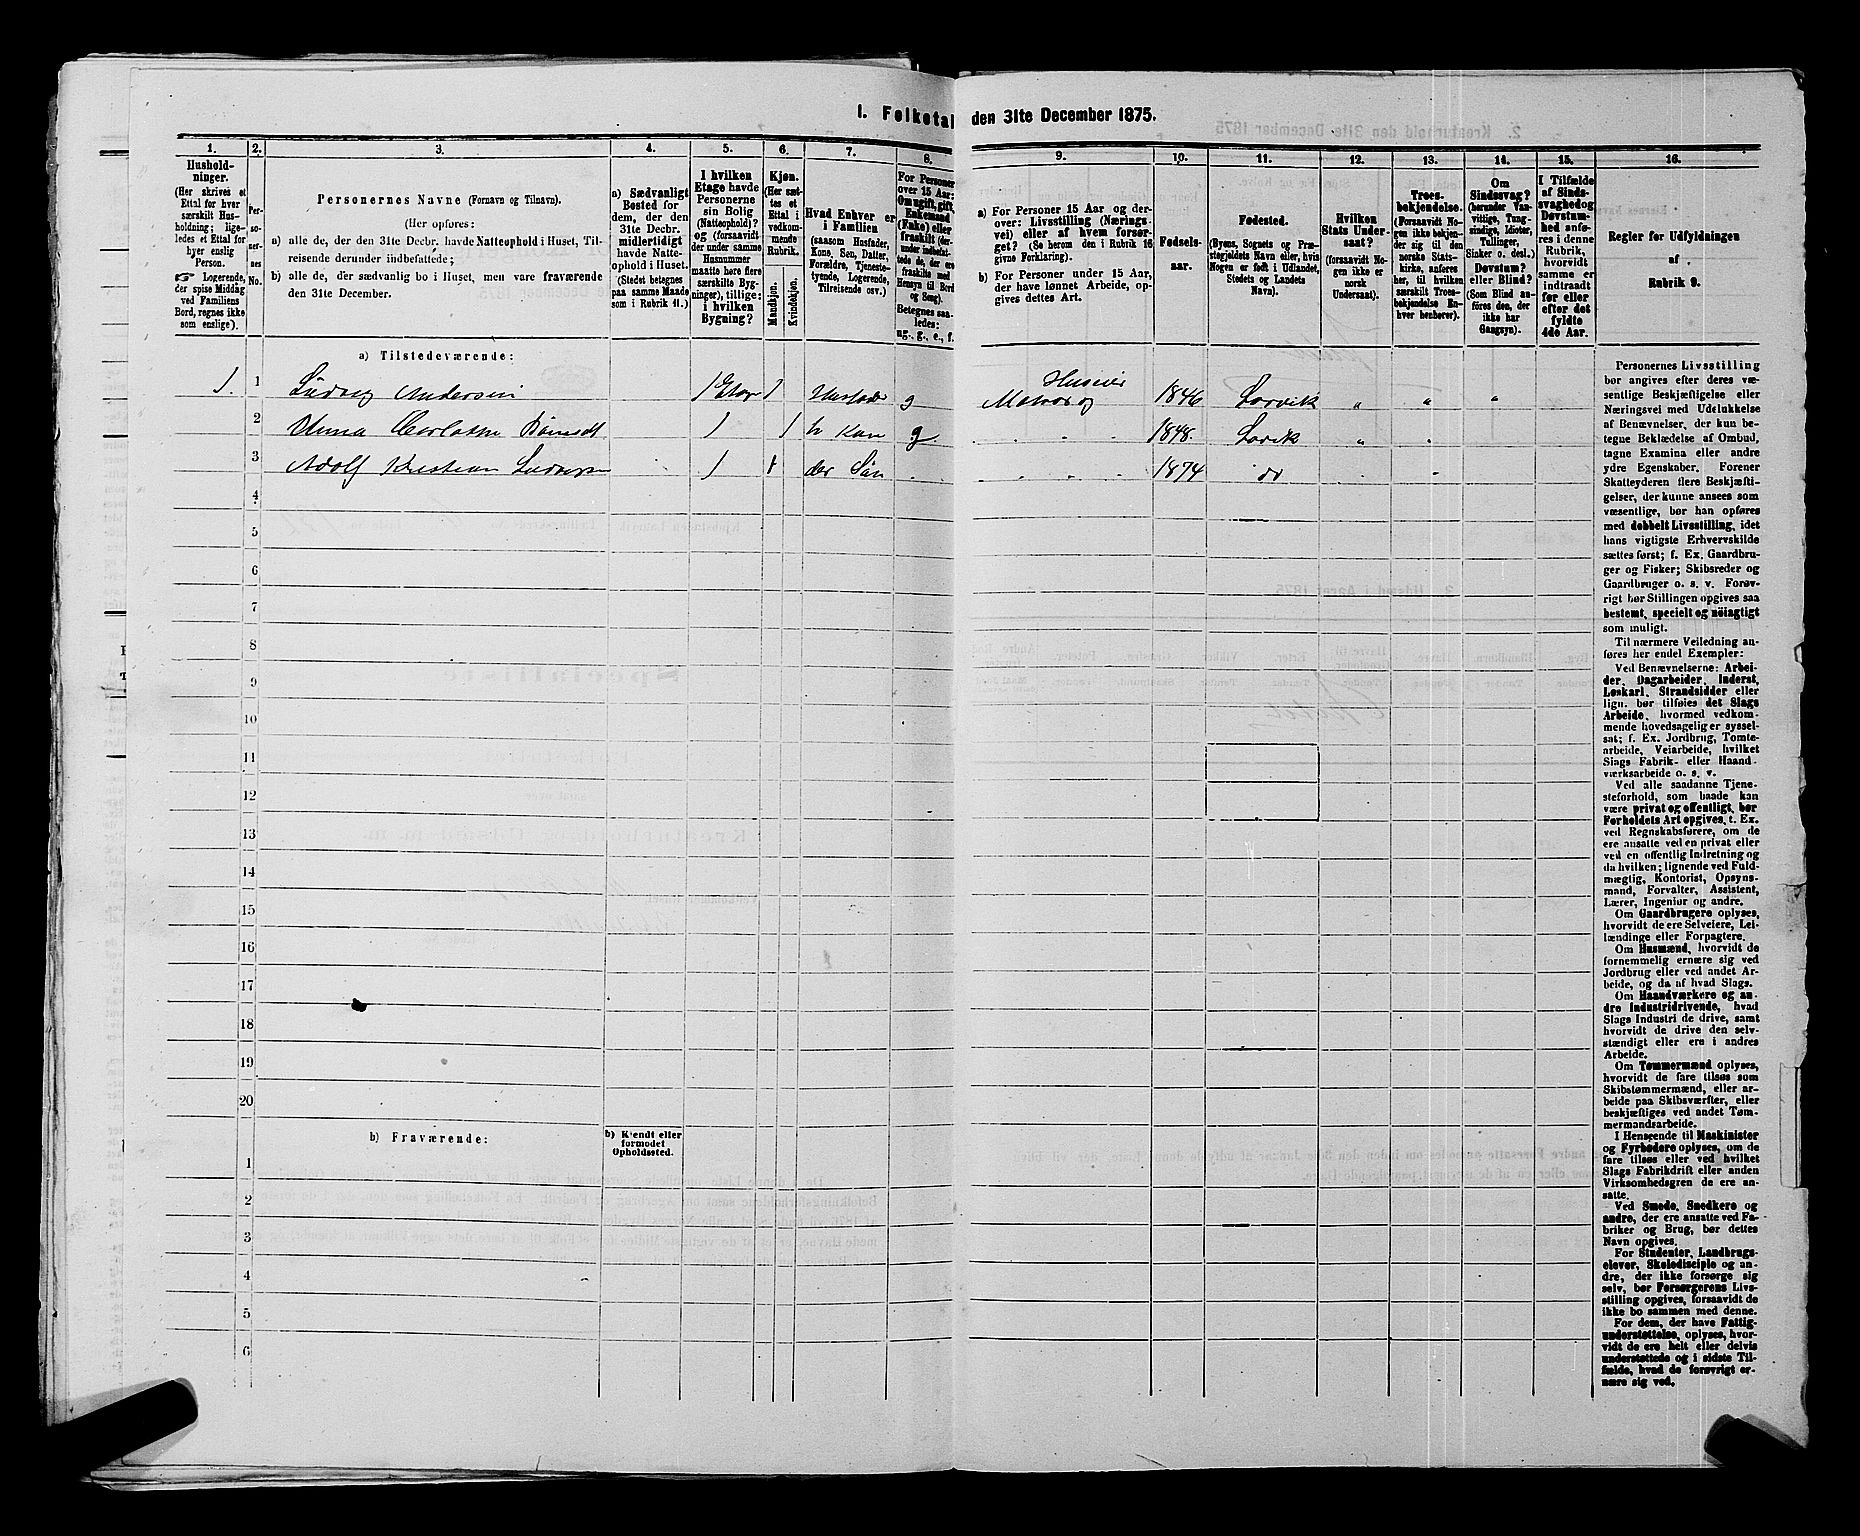 1. Folketal den 31te December 1875.
1. 2. 3. 4. 5. 6. 7. 8. 9. 10. 11. 12. 13. 14. 15. 16.
Hushold-
ninger.
(Her skrives et
Ettal for hver
særskilt Hus-
holdning; lige-
ledes et Ettal for
hver enslig
Person.
☛ Logerende,
der spise Middag
ved Familiens
Bord, regnes ikke
som enslige).
Per-
so-
ner-
nes
No.
Personernes Navne (Fornavn og Tilnavn).
(Her opføres:
a) alle de, der den 31te Decbr. havde Natteophold i Huset, Til-
reisende derunder indbefattede;
b) alle de, der sædvanlig bo i Huset, men vare fraværende
den 31te December.
a) Sædvanligt
Bosted for
dem, der den
31te Decbr.
midlertidigt
havde Natte-
ophold i Huset.
(Stedet betegnes
paa samme Maade
som i Rubrik 11.)
I hvilken
Etage havde
Personerne
sin Bolig
(Natteophold)?
og (forsaavidt
der under samme
Husnummer
maatte høre flere
særskilte Byg-
ninger), tillige:
i hvilken
Bygning?
Kjøn.
(Her sæt-
tes et
Ettal i
vedkom-
mende
Rubrik.
Mandkjøn.
Kvindekjøn.
Hvad Enhver er
i Familien
(saasom Husfader,
Kone, Søn, Datter,
Forældre, Tjeneste-
tyende, Logerende,
Tilreisende osv.)
For Personer
over 15 Aar:
Om ugift, gift,
Enkemand
(Enke) eller
fraskilt (der-
under indbefat-
tede de, der ere
fraskilte med
Hensyn til Bord
og Seng).
Betegnes saa-
ledes:
ug., g., e., f.
a) For Personer 15 Aar og der-
over: Livsstilling (Nærings-
vei) eller af hvem forsør-
get? (Se herom den i Rubrik 16
givne Forklaring).
b) For Personer under 15 Aar,
der have lønnet Arbeide, op-
gives dettes Art.
Fødsels-
aar.
Fødested.
(Byens, Sognets og Præ-
stegjeldets Navn eller, hvis
Nogen er født i Udlandet,
Stedets og Landets
Navn).
Hvilken
Stats Under-
saat?
(forsaavidt No-
gen ikke er
norsk
Undersaat).
Troes-
bekjendelse.
(Forsaavidt No-
gen ikke bekjen-
der sig til den
norske Stats-
kirke, anføres
her, til hvilken
særskilt Troes-
bekjendelse En-
hver henhører).
Om
Sindssvag?
(herunder Van-
vittige, Tung-
sindige, Idioter,
Tullinger,
Sinker o. desl.)
Døvstum?
eller Blind?
(Som Blind an-
føres den, der
ikke har
Gangsyn).
I Tilfælde
af Sinds-
svaghed og
Døvstum-
hed anfø-
res i denne
Rubrik,
hvorvidt
samme er
indtraadt
før eller
efter det
fyldte
4de Aar.
Regler for Udfyldningen
af
Rubrik 9.
a) Tilstedeværende:
1. 1 Ludvig Andersen 1 Etage 1 Husfader g Matros og Huseier 1846 Larvik " " "
2 Anna Carlotha 1 1 h Kone g 1848. Larvik " "
3 Adolf Kristian 1 1 der Søn 1874 do
4
5
6
7
8
9
10
11
12
13
14
15
16
17
18
19
20
b) Fraværende:
b) Kjendt eller
formodet
Opholdssted.
1
2
3
4
5
6
Personernes Livsstilling
bør angives efter deres væ-
sentlige Beskjæftigelse eller
Næringsvei med Udelukkelse
af Benævnelser, der kun be-
tegne Beklædelse af Ombud,
tagne Examina eller andre
ydre Egenskaber. Forener
Skatteyderen flere Beskjæfti-
gelser, der kunne ansees som
væsentlige, bør han opføres
med dobbelt Livsstilling, idet
hans vigtigste Erhvervskilde
sættes først; f. Ex. Gaardbru-
ger og Fisker; Skibsreder og
Gaardbruger o. s. v. Forøv-
rigt bør Stillingen opgives saa
bestemt, specielt og nøiagtigt
som muligt.
Til nærmere Veiledning an-
føres her endel Exempler:
Ved Benævnelserne: Arbei-
der, Dagarbeider, Inderst,
Løskarl, Strandsidder eller
lign. bør tilføies det Slags
Arbeide, hvormed vedkom-
mende hovedsagelig er syssel-
sat; f. Ex. Jordbrug, Tomte-
arbeide, Veiarbeide, hvilket
Slags Fabrik- eller Haand-
værksarbeide o. s. v.
Ved alle saadanne Tjene-
steforhold, som baade kan
være privat og offentligt, bør
Forholdets Art opgives, t. Ex.
ved Regnskabsførere, om de
ere ansatte ved en privat eller
ved en offentlig Indretning og
da hvilken; lignende ved Fuld-
mægtig, Kontorist, Opsyns-
mand, Forvalter, Assistent,
Lærer, Ingeniør og andre.
Om Gaardbrugere oplyses,
hvorvidt de ere Selveiere, Lei-
lændinge eller Forpagtere.
Om Husmænd, hvorvidt de
fornemmelig ernære sig ved
Jordbrug eller ved andet Ar-
beide, og da af hvad Slags.
Om Haandværkere og an-
dre industridrivende, hvad
Slags Industri de drive, samt
hvorvidt de drive den selv-
stændigt eller ere i andres
Arbeide.
Om Tømmermænd oplyses,
hvorvidt de fare tilsøs som
Skibstømmermænd, eller ar-
beide paa Skibsværfter, eller
beskjæftiges ved andet Tøm-
mermandsarbeide.
I Henseende til Maskinister
og Fyrbødere oplyses, om de
fare tilsøs eller ved hvilket
Slags Fabrikdrift eller anden
Virksomhedsgren de ere an-
satte.
Ved Smede, Snedkere og
andre, der ere ansatte ved Fa-
briker og Brug, bør dettes
Navn opgives.
For Studenter, Landbrugs-
elever, Skoledisciple og an-
dre, der ikke forsørge sig
selv, bør Forsørgerens Livs-
stilling opgives, forsaavidt de
ikke bo sammen med denne.
For dem, der have Fattig-
understøttelse, oplyses, hvor-
vidt de ere helt eller delvis
understøttede og i sidste Til-
fælde, hvad de forøvrigt er-
nære sig ved.